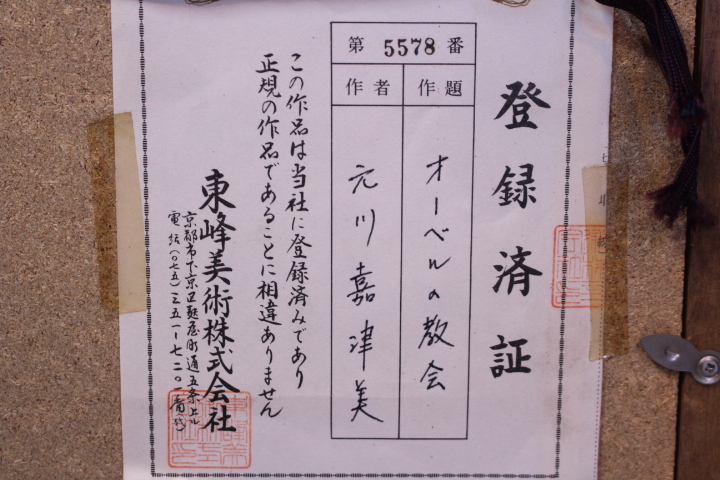 登録済証
第5578番
作題
オーベルの教会
作者
元川嘉津美
この作品は当社に登録済みであり
正規の作品であることに相違ありません
東峰美術株式会社
京都市下京区麩屋町通五条上ル
電話(〇七五)三五一-七二〇一番代